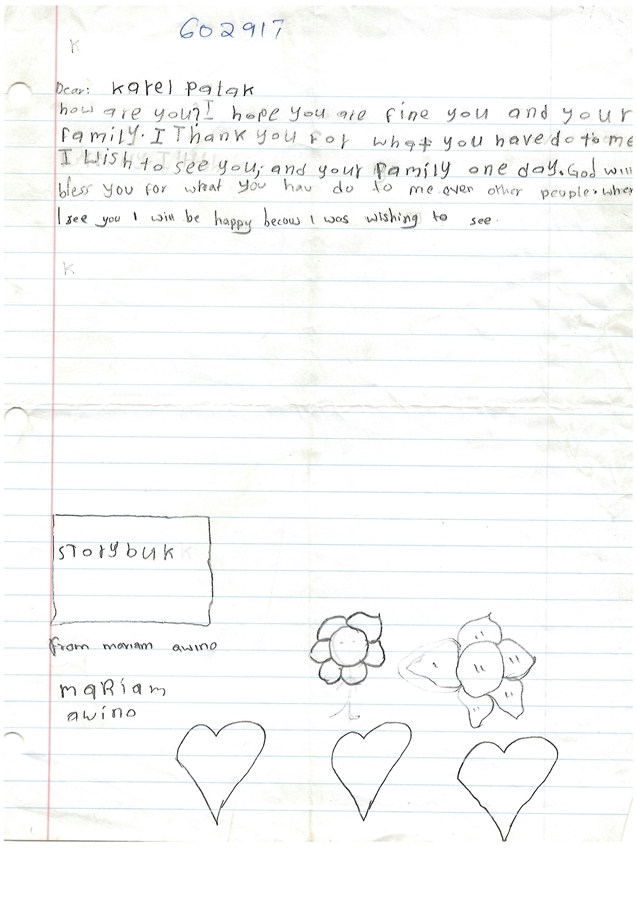 602917
K
Dear: Karel Patak
how are you? I hope you are fine you and your
family. I Thank you For what you have do to me
I Wish to see you; and your Family one day. God will
bless you for what you hav do to me over other people. when
I see you I will be happy becows I was wishing to see.
K
STorybuk
from mariam awino
maRiam
awino